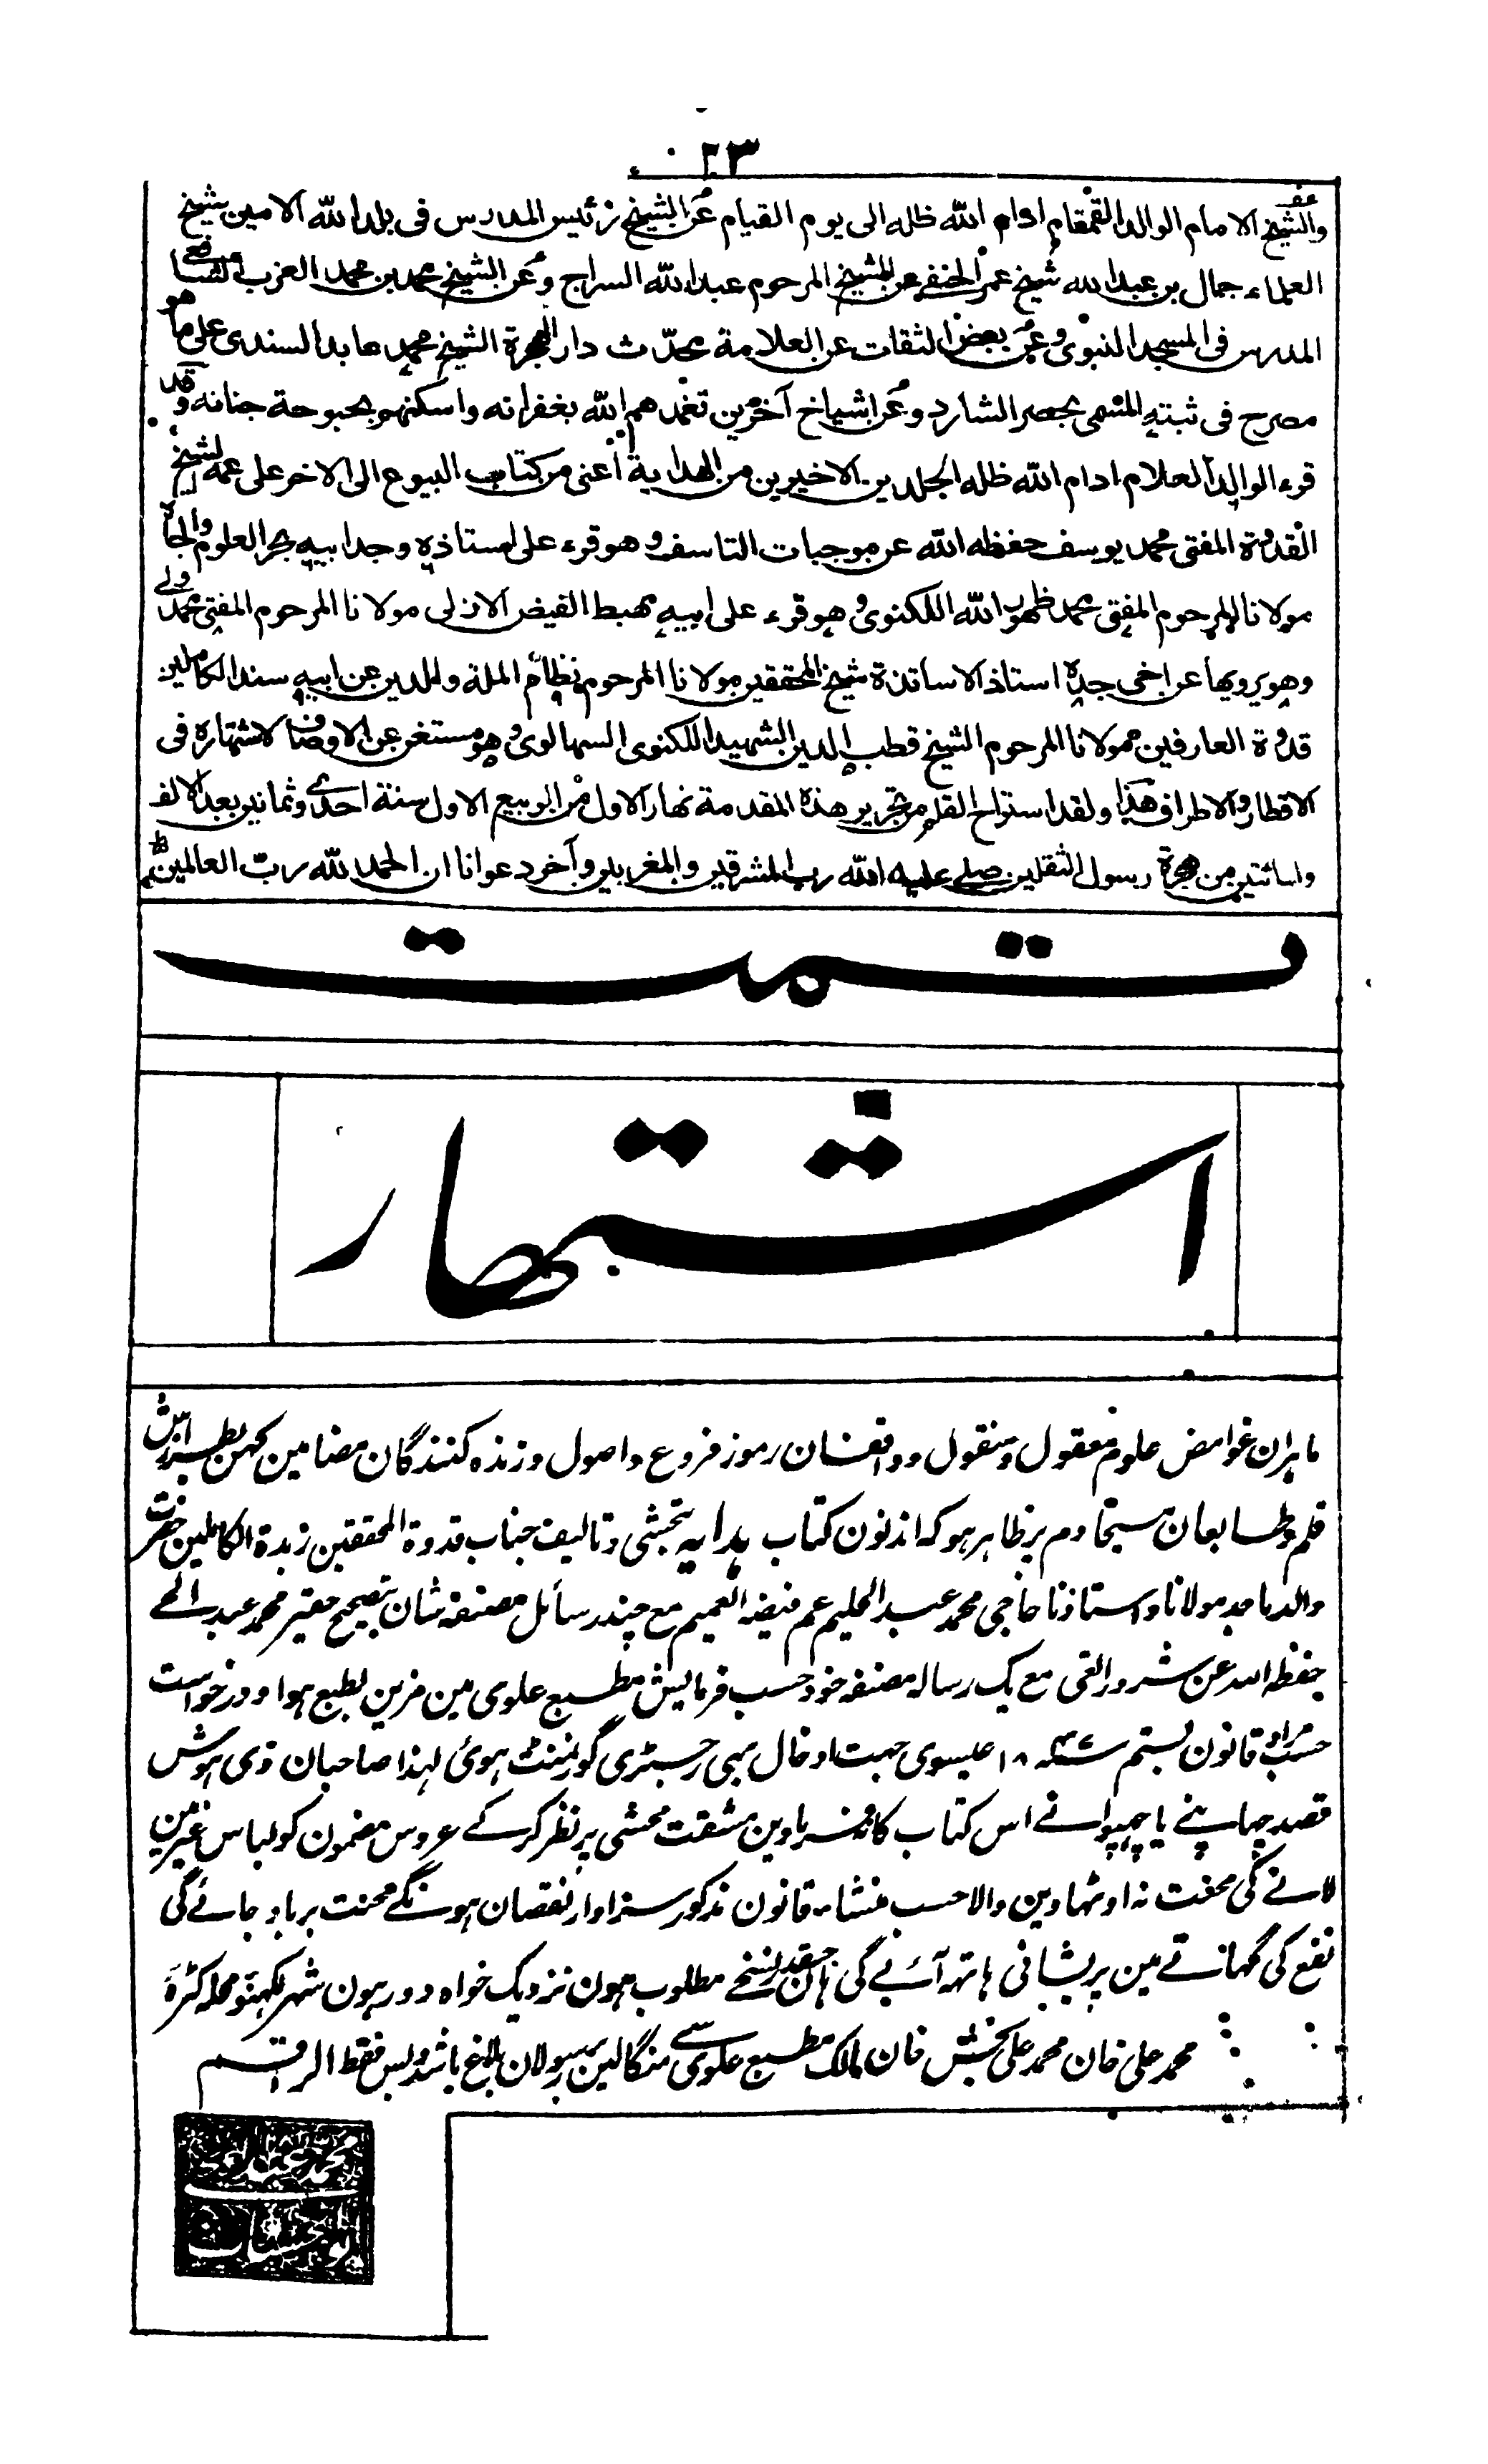 ٢٣
والشيخ الامام الوالد القمقام ادام الله ظله الى يوم القيام عن الشيخ رئيس المدرس فى بلد الله الامين شيخ
العلماء جمال بن عبد الله شيخ عمر الحنفى عن الشيخ المرحوم عبد الله السراج وعن الشيخ محمد بن محمد العزب الشافعى
المدرس فى المسجد النبوى وعن بعض الثقات عن العلامة محدّث دار الهجرة الشيخ محمد عابد السندى على ما هو
مصرح فى ثبته المسمى بحصر الشارد وعن اشياخ آخرين تغمدهم الله بغفرانه واسكنهم بحبوحة جنانه وقد
قرء الوالد العلام ادام الله ظله المجلدين الاخيرين من الهداية أعنى من كتاب البيوع الى الاخر على عمه الشيخ
القدوة المفتى محمد يوسف حفظه الله عن موجبات التاسف وهو قرء على استاذه وجد ابيه بحر العلوم والجاه
مولانا المرحوم المفتى محمد ظهور الله اللكنوى وهو قرء على ابيه مهبط الفيض الازلى مولانا المرحوم المفتى محمد ولى
وهو يرويها عن اخى جده استاذ الاساتذة شيخ المحققين مولانا المرحوم نظام الملة والدين عن ابيه سند الكاملين
قدوة العارفين مولانا المرحوم الشيخ قطب الدين الشهيد اللكنوى السهالوى وهو مستغن عن الاوصاف لاشتهاره فى
الاقطار والاطراف هذا ولقد استراح القلم من تحرير هذه المقدمة نهار الاول من الربيع الاول سنة احدى وثمانين بعد الالف
واسائتين من هجرة رسول الثقلين صلى عليه الله رب المشرقين والمغربين وآخر دعوانا ان الحمد لله ربّ العالمين
تمت
اشتہار
ماہران غوامض علوم معقول و منقول و واقفان رموز فروع و اصول و زندہ کنندگان مضامین کہن بطراش
قلم و طابعان مسیحا دم پر ظاہر ہو کہ اندنون کتاب ہدایہ بتحشی و تالیف جناب قدوۃ المحققین زبدۃ الکاملین حضرت
والد ماجد مولانا و استاذنا حاجی محمد عبد الحلیم عم فیضہ العمیم مع چند رسائل مصنفہ شان بتصحیح حقیر محمد عبد الحے
حفظہ اللہ عن شرور الغی مع یک رسالہ مصنفہ خود حسب فرمایش مطبع علوی مین مزین بطبع ہوا و درخواست
حسب مراد قانون بستم ۱۸۴۷ عیسوی جہت ادخال بہی رجسٹری گورنمنٹ ہوئی لہذا صاحبان ذی ہوش
قصد چہاپنے یا چہپوانے اس کتاب کا نہ فرماوین مشقت محشی پر نظر کرکے عروس مضمون کو لباس غیر مین
لانے کی محنت نہ اوٹہاوین والا حسب منشاء قانون مذکور سزاوار نقصان ہونگے محنت برباد جائے گی
نفع کی گہاتے مین پریشانی ہاتہہ آئے گی ہان جسقدر نسخے مطلوب ہون نزدیک خواہ دور ہون شہر لکہنو محلہ کٹرہ
محمد علی خان محمد علی بخش خان مالک مطبع علوی سے منگا لین برسولان بلاغ باشد و بس فقط الراقم